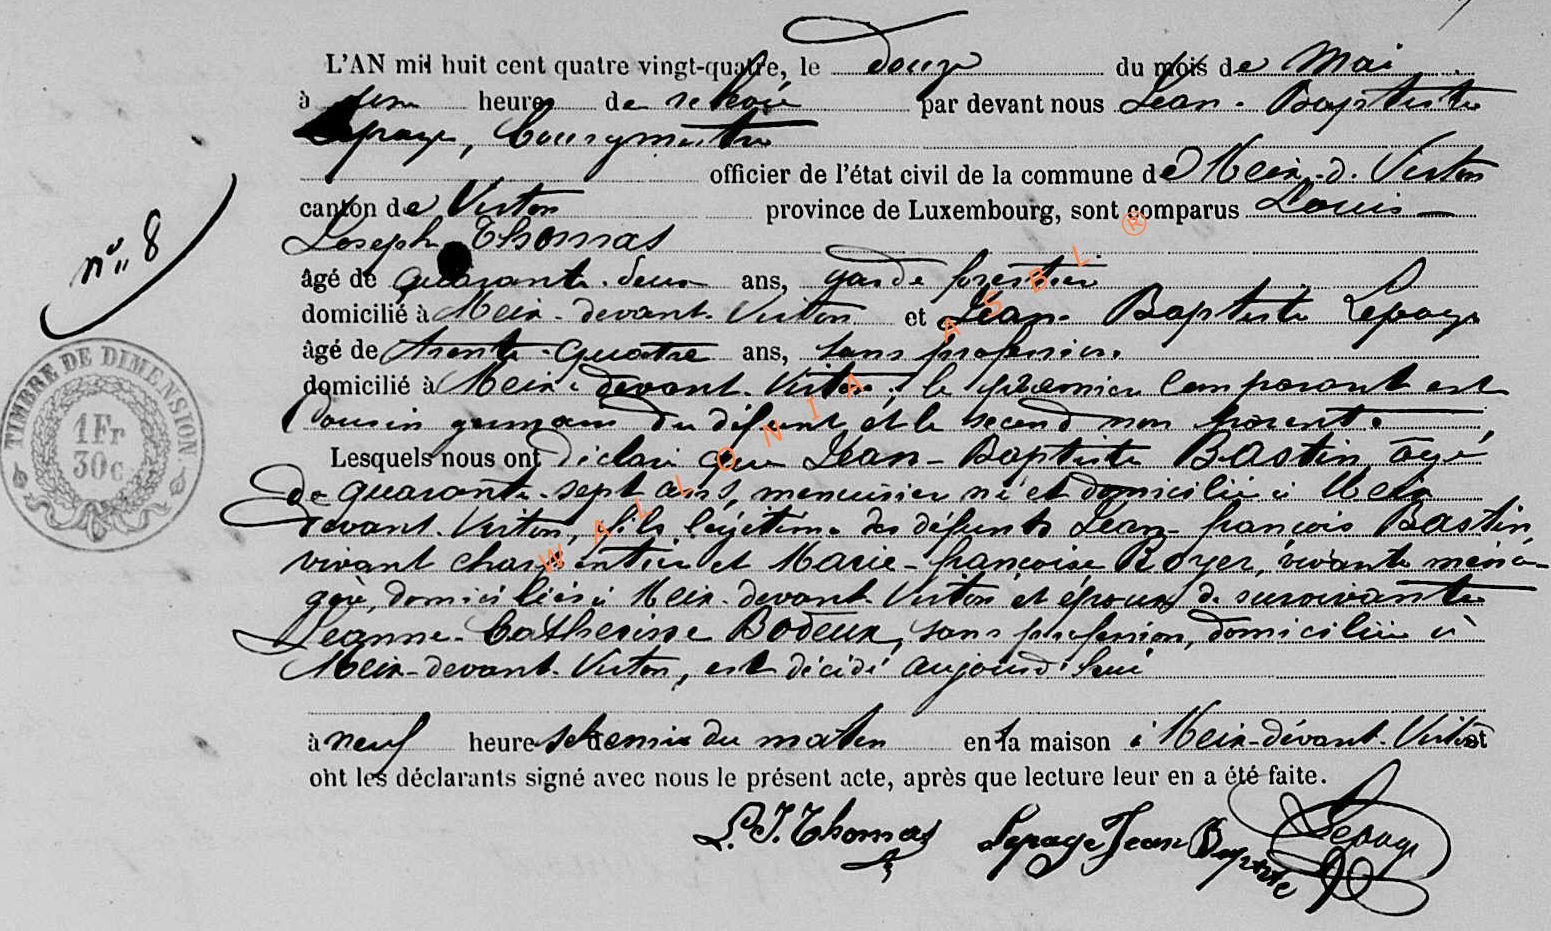 L'AN mil huit cent quatre vingt-quatre, le douze du mois de Mai
à une heure de relevée par devant nous Jean-Baptiste
Lepage, Bourgmestre
officier de l'état civil de la commune de Meix-d. Virton
canton de Virton province de Luxembourg, sont comparus Louis-
Joseph Thomas
n° 8
âgé de quarante-deux ans, garde forestier
domicilié à Meix-devant-Virton et Jean-Baptiste Lepage
âgé de trente-quatre ans, sans profession.
domicilié à Meix-devant-Virton; le premier comparant est
Cousin germain du défunt et le second non parent.
Lesquels nous ont déclaré que Jean-Baptiste Bastin, âgé
de quarante-sept ans, menuisier né et domicilié à Meix
devant-Virton, fils légitime des défunts Jean-françois Bastin,
vivant charpentier et Marie-françoise Royer, vivante ména-
gère, domiciliés à Meix-devant-Virton et époux de survivante
Jeanne-Catherine Bodeux, sans profession, domiciliée à
Meix-devant-Virton, est décédé aujourd'hui
à neuf heures et demie du matin en la maison à Meix-dévant-Virton et
ont les déclarants signé avec nous le présent acte, après que lecture leur en a été faite.
L.J. Thomas Lepage Jean Baptiste Lepage
TIMBRE DE DIMENSION
1 Fr
30c
WALLONIA ASBL ®